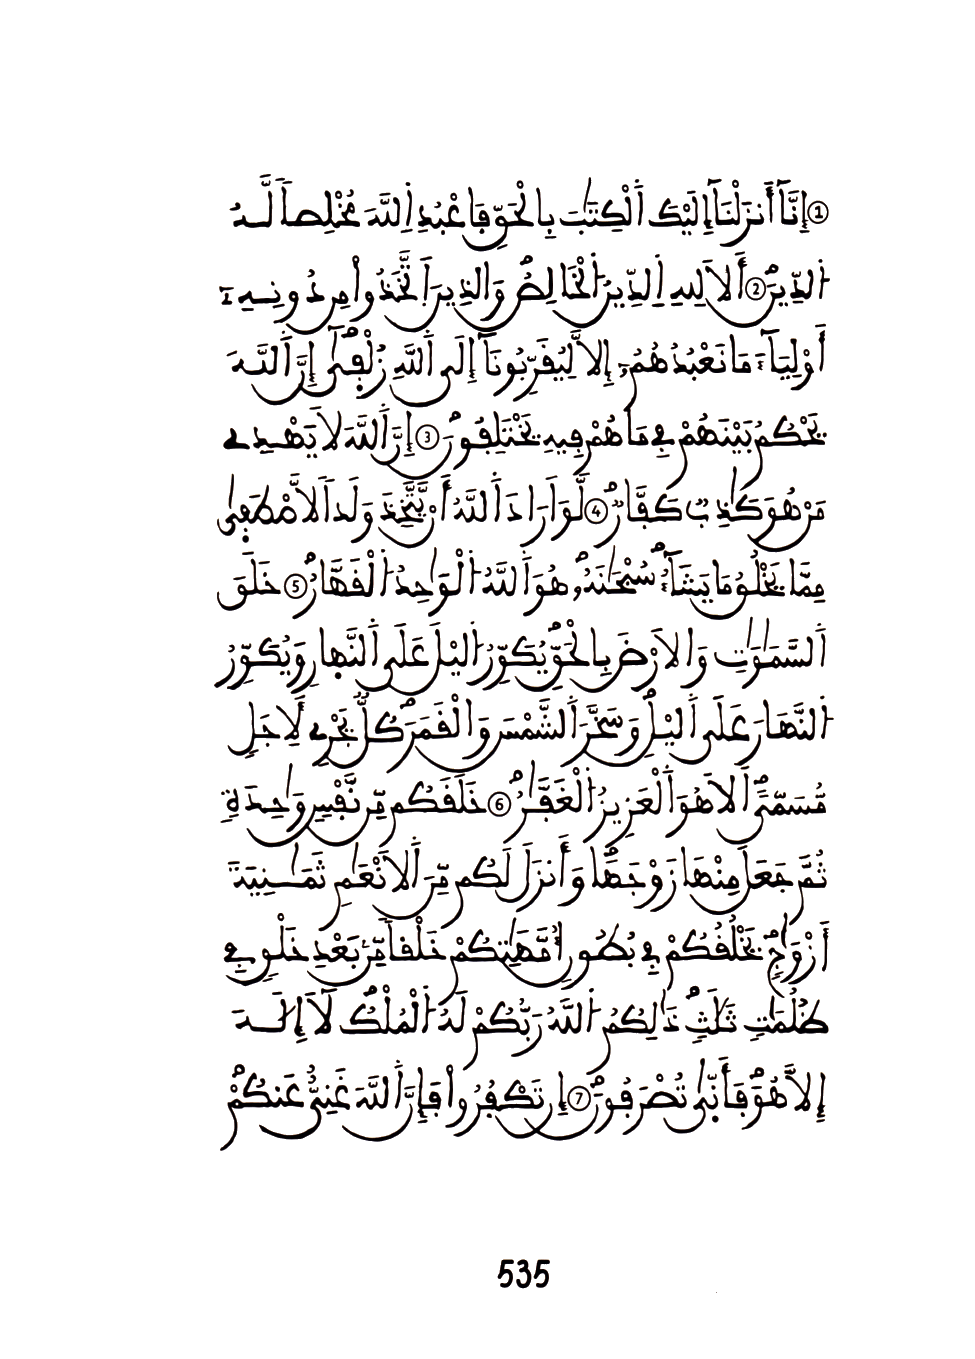 ① إِنَّآ أَنزَلْنَآ إِلَيْكَ اَ۬لْكِتَٰبَ بِالْحَقِّ فَاعْبُدِ اِ۬للَّهَ مُخْلِصاٗ لَّهُ
اُ۬لدِّينَۖ ② أَلَا لِلهِ اِ۬لدِّينُ اُ۬لْخَالِصُۖ وَالذِينَ اَ۪تَّخَذُواْ مِن دُونِهِۦٓ
أَوْلِيَآءَ مَا نَعْبُدُهُمُۥٓ إِلَّا لِيُقَرِّبُونَآ إِلَى اَ۬للَّهِ زُلْفٜىٰٓۖ إِنَّ اَ۬للَّهَ
يَحْكُمُ بَيْنَهُمْ فِے مَا هُمْ فِيهِ يَخْتَلِفُونَۖ ③ إِنَّ اَ۬للَّهَ لَا يَهْدِے
مَنْ هُوَ كَٰذِبٞ كَفَّارٞۖ ④ لَّوَ اَرَادَ اَ۬للَّهُ أَنْ يَّتَّخِذَ وَلَداٗ لَّاصْطَفٜىٰ
مِمَّا يَخْلُقُ مَا يَشَآءُۖ سُبْحَٰنَهُۥۖ هُوَ اَ۬للَّهُ اُ۬لْوَٰحِدُ اُ۬لْقَهَّارُۖ ⑤ خَلَقَ
اَ۬لسَّمَٰوَٰتِ وَالَارْضَ بِالْحَقِّۖ يُكَوِّرُ اُ۬ليْلَ عَلَى اَ۬لنَّه۪ارِ وَيُكَوِّرُ
اُ۬لنَّهَارَ عَلَى اَ۬ليْلِۖ وَسَخَّرَ اَ۬لشَّمْسَ وَالْقَمَرَۖ كُلّٞ يَجْرِے لِأَجَلٖ
مُّسَمّىًۖ اَلَا هُوَ اَ۬لْعَزِيزُ اُ۬لْغَفَّٰرُۖ ⑥ خَلَقَكُم مِّن نَّفْسٖ وَٰحِدَةٖ
ثُمَّ جَعَلَ مِنْهَا زَوْجَهَاۖ وَأَنزَلَ لَكُم مِّنَ اَ۬لَانْعَٰمِ ثَمَٰنِيَةَ
أَزْوَٰجٖۖ يَخْلُقُكُمْ فِے بُطُونِ أُمَّهَٰتِكُمْ خَلْقاٗ مِّنۢ بَعْدِ خَلْقٖ فِے
ظُلُمَٰتٖ ثَلَٰثٖۖ ذَٰلِكُمُ اُ۬للَّهُ رَبُّكُمْ لَهُ اُ۬لْمُلْكُۖ لَآ إِلَٰهَ
إِلَّا هُوَۖ فَأَنّٜىٰ تُصْرَفُونَۖ ⑦ إِن تَكْفُرُواْ فَإِنَّ اَ۬للَّهَ غَنِيٌّ عَنكُمْۖ
535